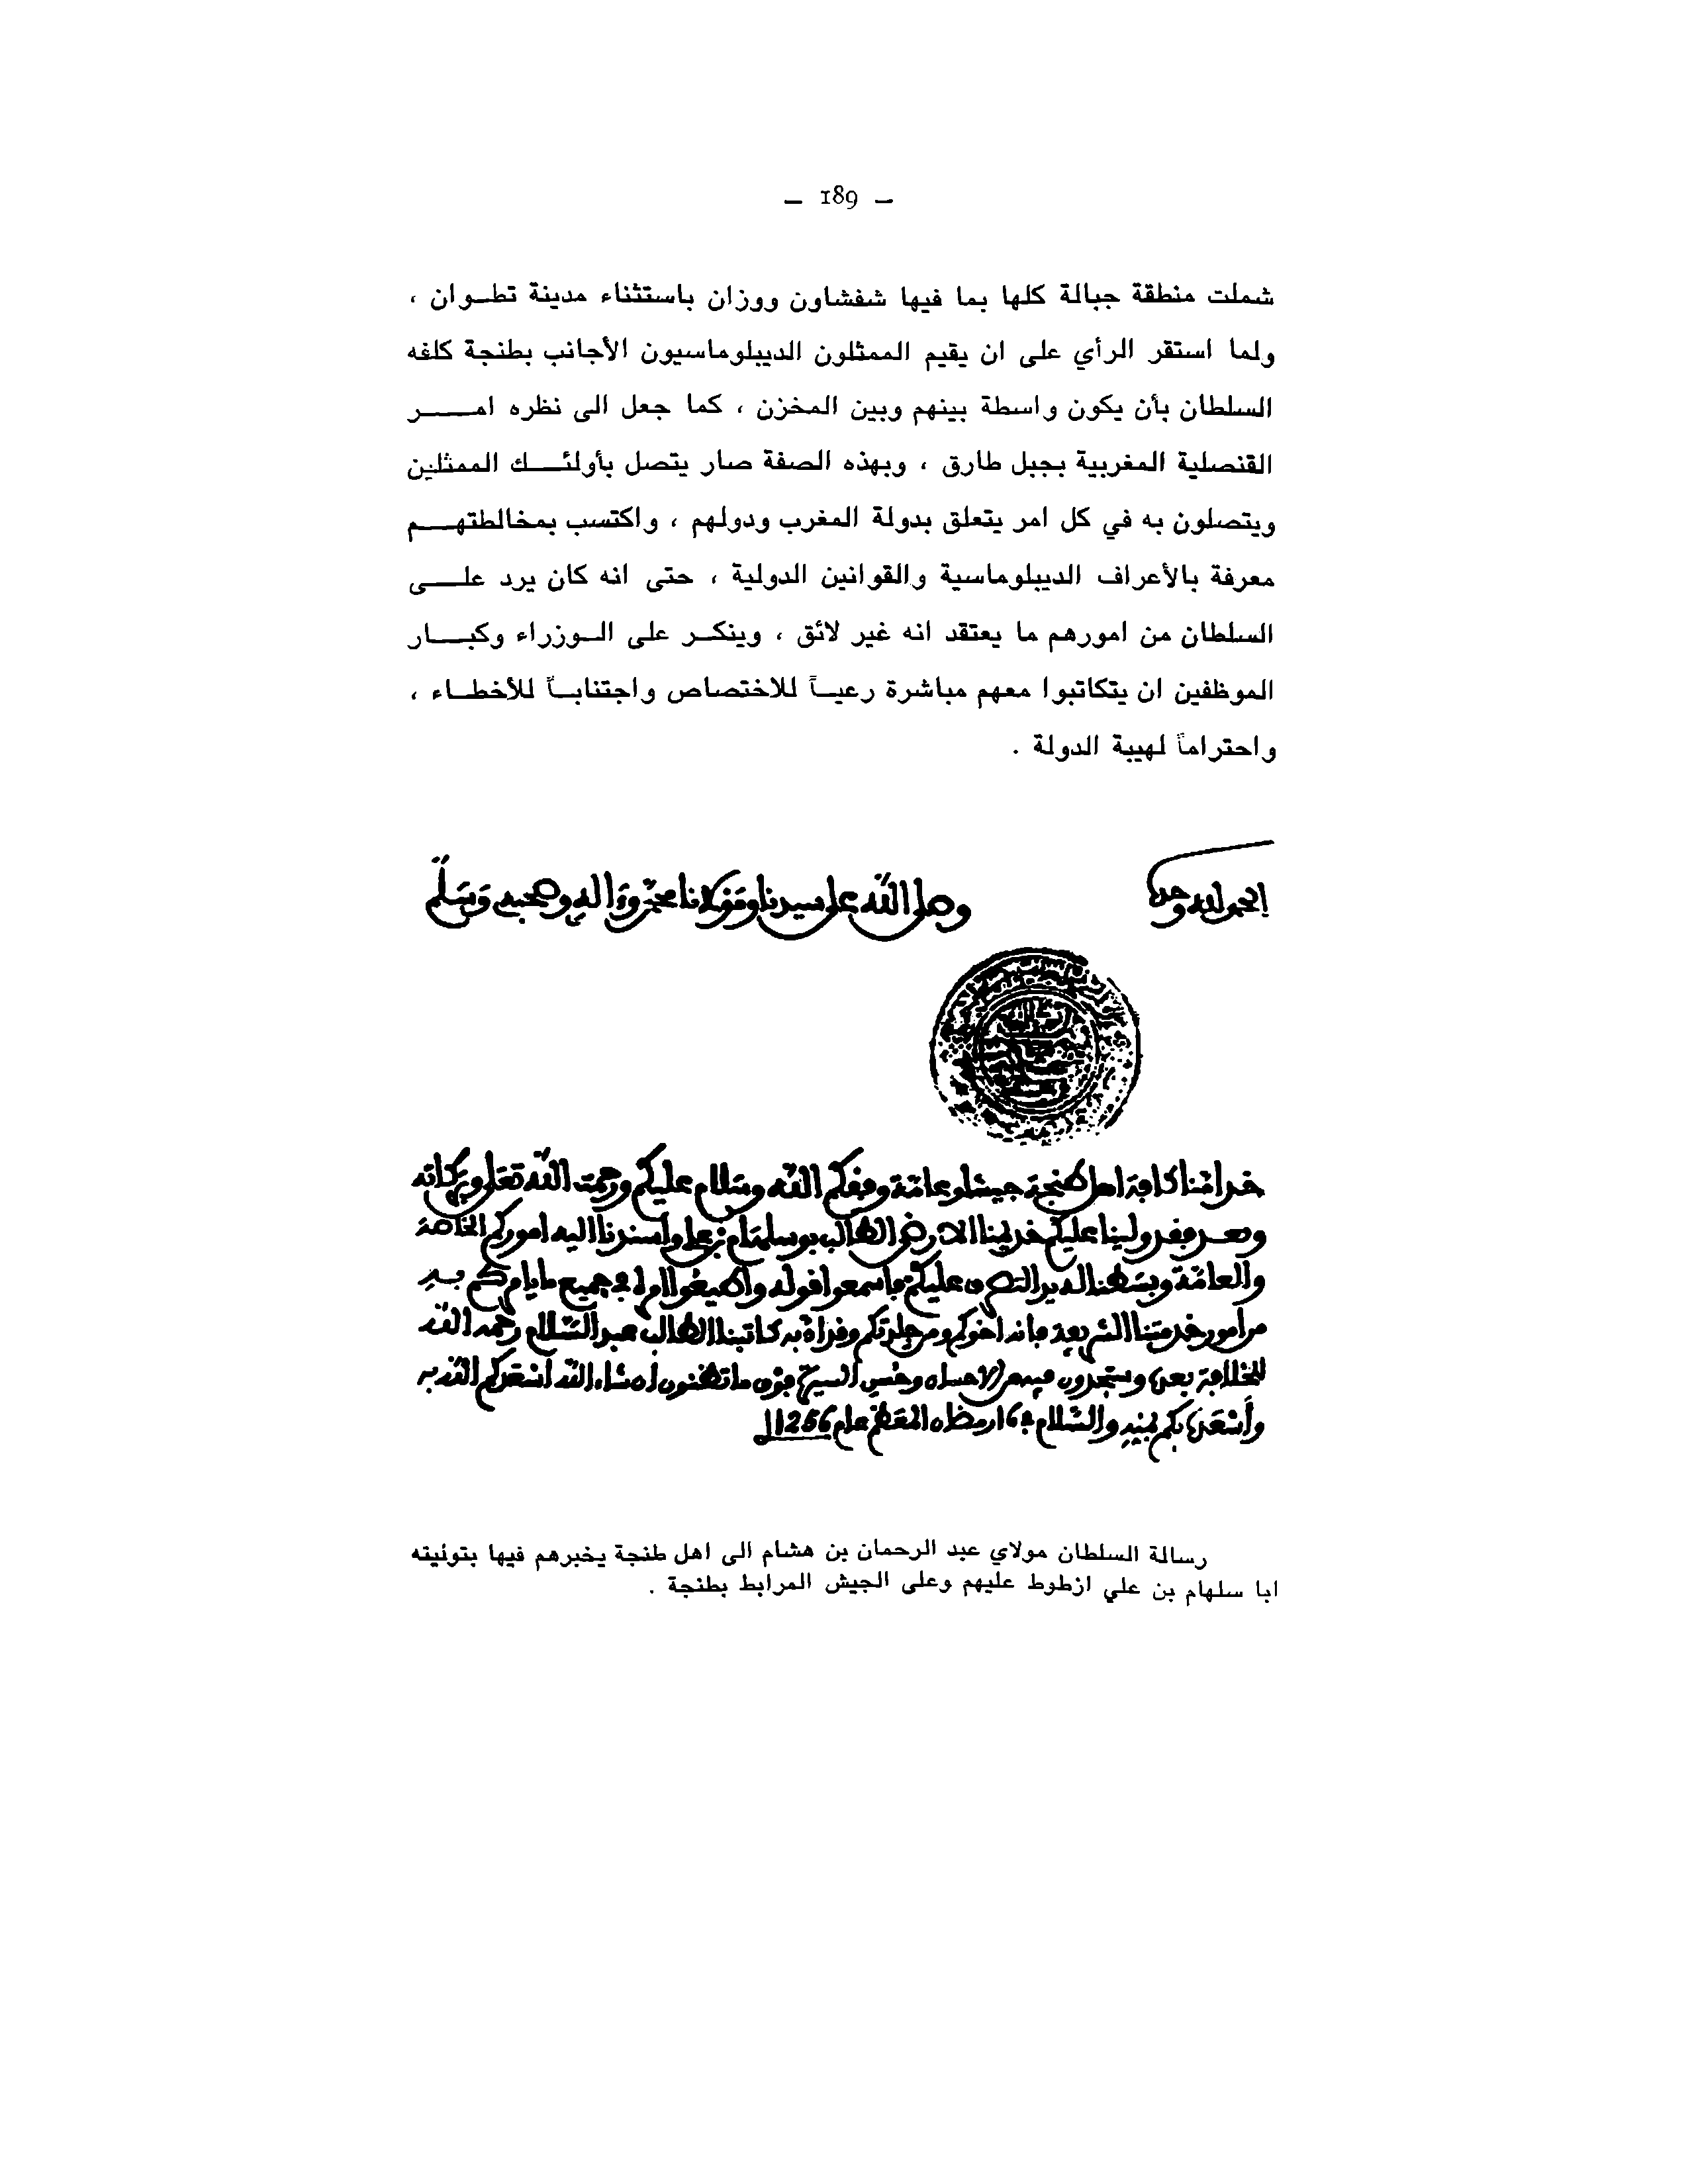 — 189 —
شملت منطقة جبالة كلها بما فيها شفشاون ووزان باستثناء مدينة تطــوان ،
ولما استقر الرأي على ان يقيم الممثلون الديبلوماسيون الأجانب بطنجة كلفه
السلطان بأن يكون واسطة بينهم وبين المخزن ، كما جعل الى نظره امــــر
القنصلية المغربية بجبل طارق ، وبهذه الصفة صار يتصل بأولئــك الممثلين
ويتصلون به في كل امر يتعلق بدولة المغرب ودولهم ، واكتسب بمخالطتهــم
معرفة بالأعراف الديبلوماسية والقوانين الدولية ، حتى انه كان يرد علــى
السلطان من امورهم ما يعتقد انه غير لائق ، وينكــر على الــوزراء وكبــار
الموظفين ان يتكاتبوا معهم مباشرة رعيــاً للاختصاص واجتنابــاً للأخطــاء ،
واحتراماً لهيبة الدولة .
الحمد لله وحده
وصلى الله على سيدنا ومولانا محمد وءاله وصحبه وسلم
خدامنا كافة اهل طنجة جيشا وعامة وفقكم الله وسلام عليكم ورحمت الله تعلى وبركاته
وبعد فقد ولينا عليكم خديمنا الارضى الطالب بوسلهام بن علي واسندنا اليه اموركم الخاصة
والعامة وبسطنا له يد التصرف عليكم فاسمعوا قوله واطيعوا امره في جميع ما يامركم به
من امور خدمتنا الشريفة فانه اخوكم ومن جلدتكم وقرأ به كاتبنا الطالب عبد السلام رحمه الله
وستجدون فيه من الاحسان وحسن السيرة فوق ما تظنون ان شاء الله اسعدكم الله به
وأسعده بكم بمنه والسلام في رمضان المعظم عام 1256
رسالة السلطان مولاي عبد الرحمان بن هشام الى اهل طنجة يخبرهم فيها بتوليته
ابا سلهام بن علي ازطوط عليهم وعلى الجيش المرابط بطنجة .